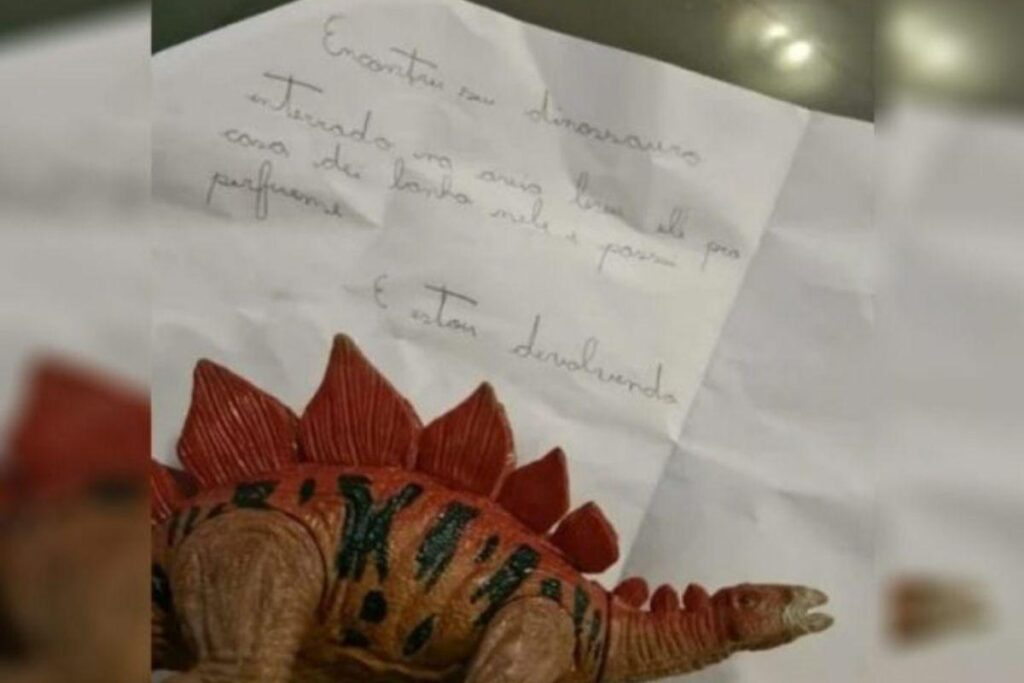 Encontrei seu dinossauro
enterrado na areia levei ele pra
casa dei banho nele e passei
perfueme
E estou devolvendo